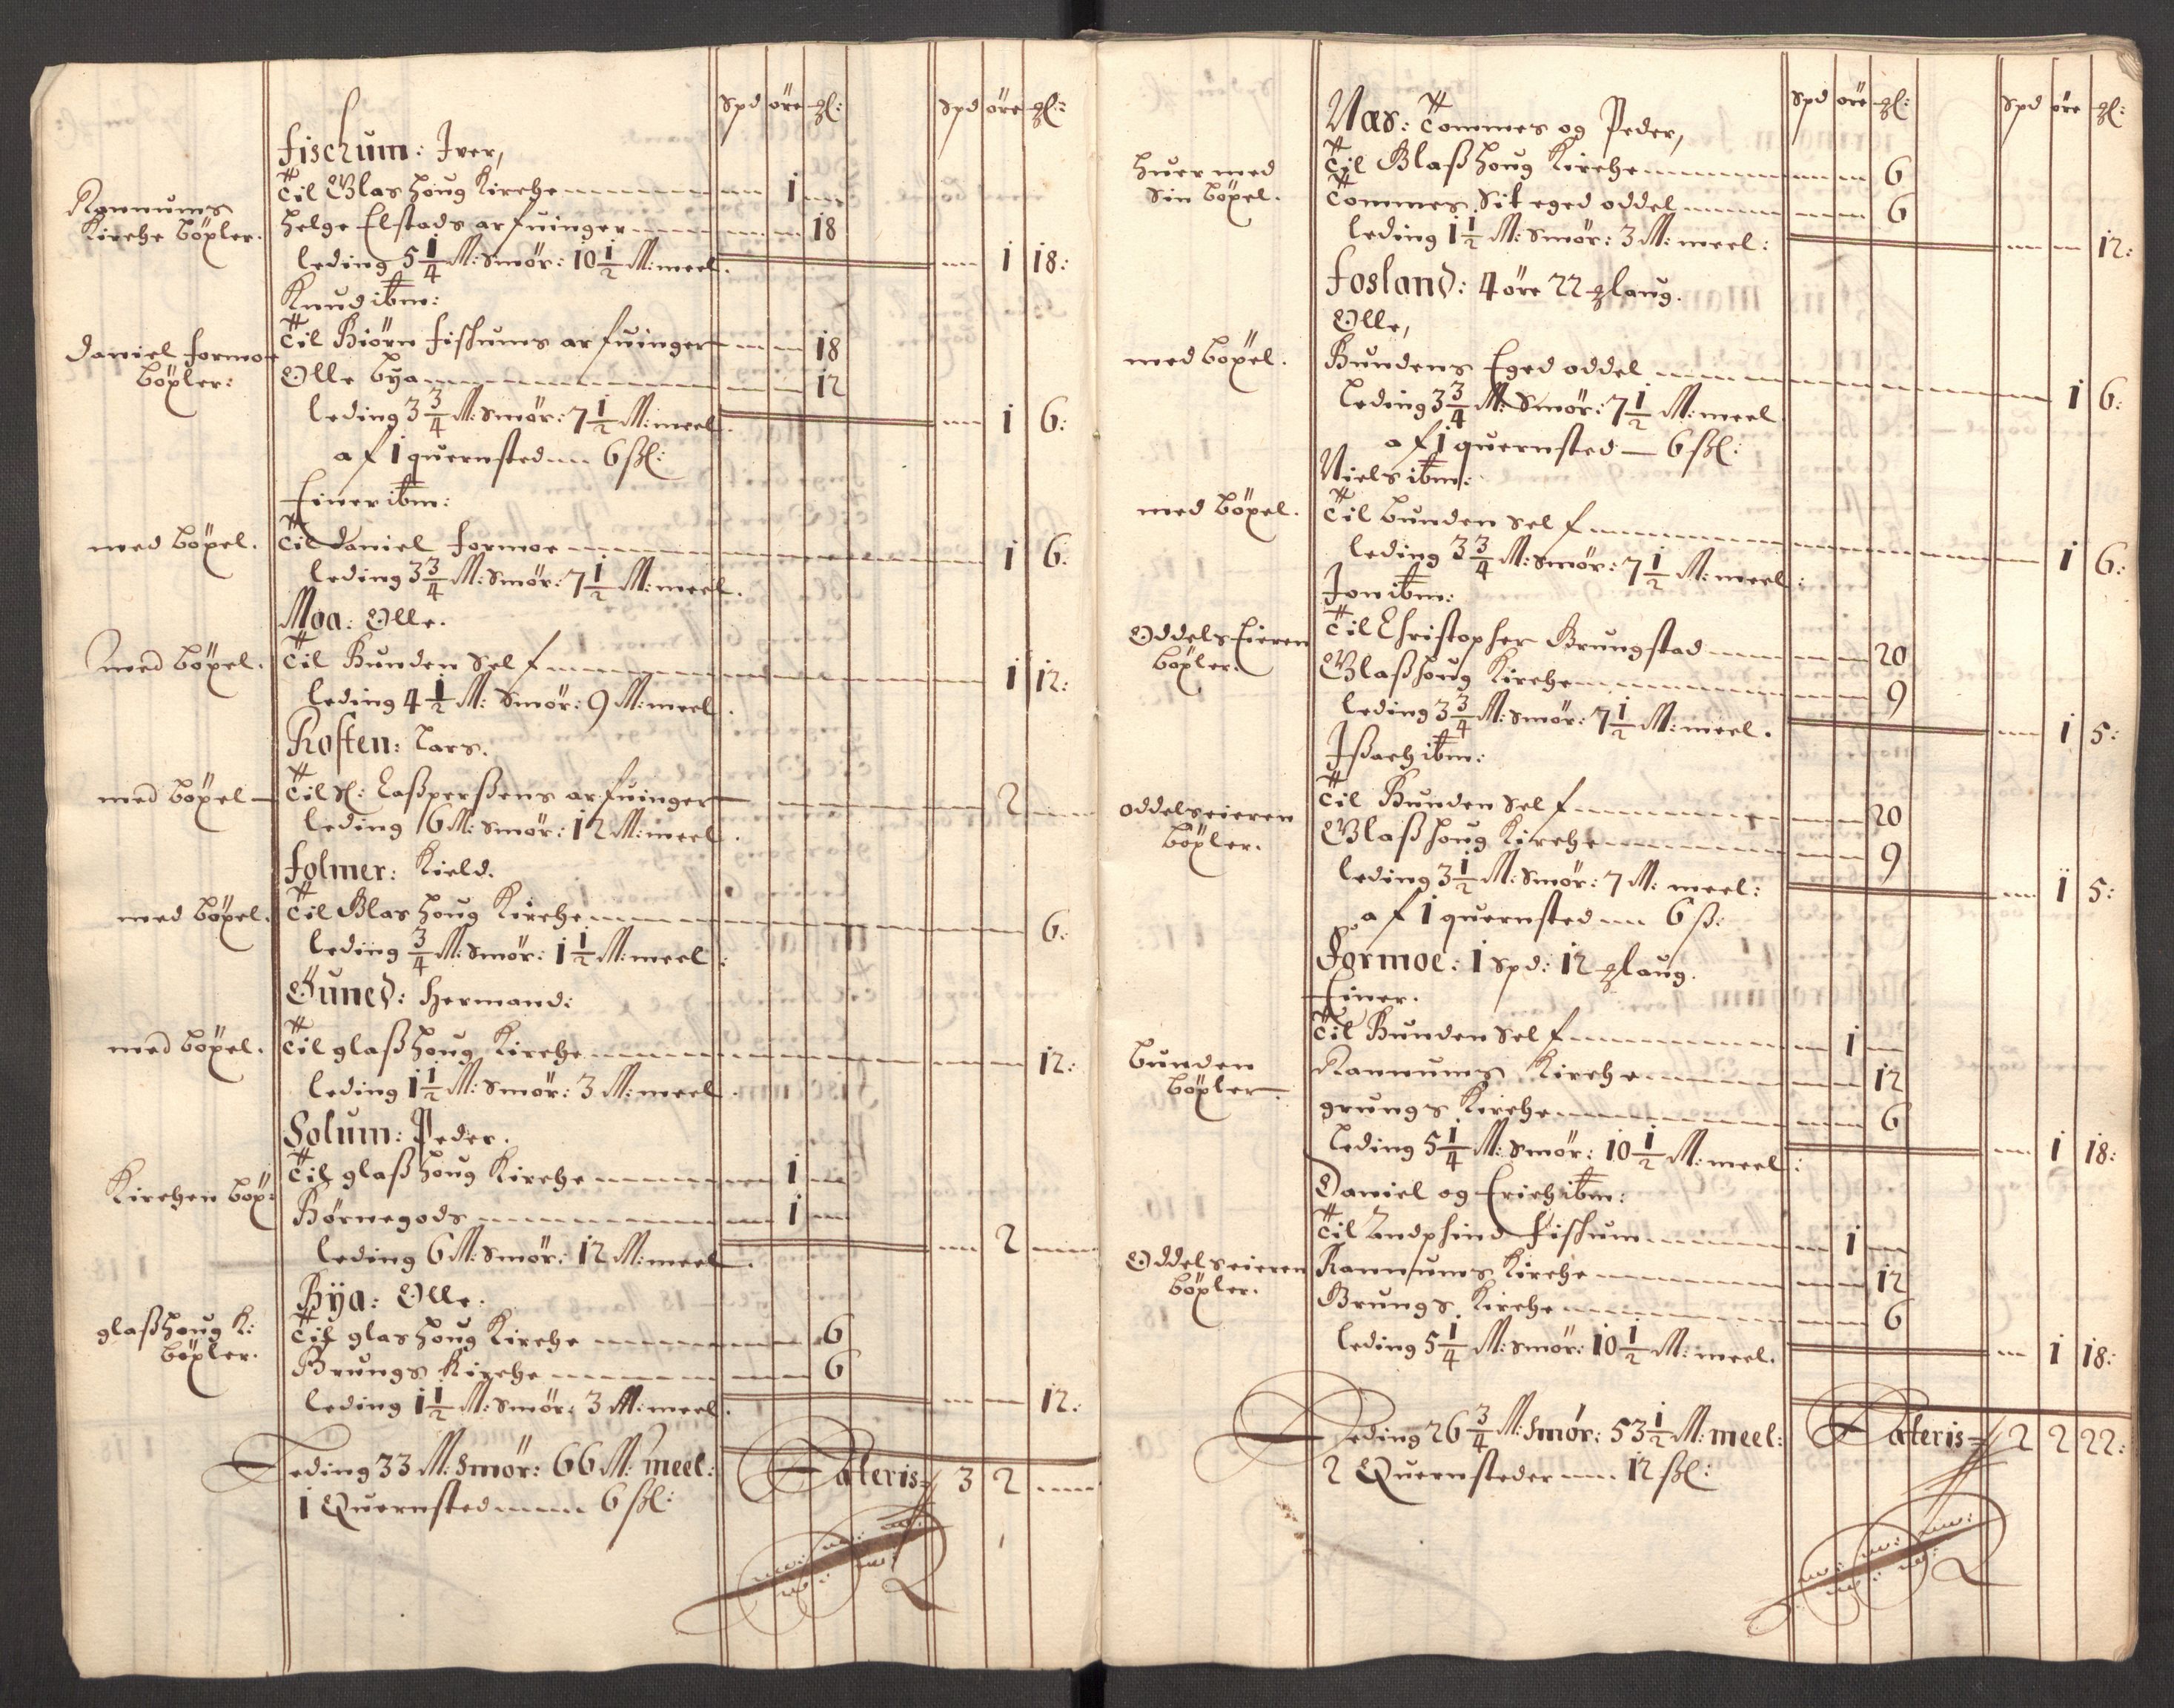 Spd öre ɡl: Spd öre ɡl:
Fischum: Iver,
Til Blashoug Kirche 1
Rannums
Kirche böxler. Helge Elstads arfuinger 18
leding 5 1/4 M: Smör: 10 1/2 M: meel. 1 18:
Knud ibm:
Daniel Formoe
böxler: Til Biörn Fishums arfuinger 18
Olle Bya 12
leding 3 3/4 M: Smör: 7 1/2 M: meel. 1 6:
af 1 quernsted 6 ßl:
Einer ibm:
med böxel. Til Daniel Formoe 1 6:
leding 3 3/4 M: Smör: 7 1/2 M: meel.
Moa: Olle.
med böxel. Til Bunden Self 1 12:
leding 4 1/2 M: Smör: 9 M: meel.
Rosten: Lars.
med böxel Til Sl: Caßperßens arfuinger 2
leding 6 M: Smör: 12 M: meel.
Folmer: Kield.
med böxel. Til Blashoug Kirche 6:
leding 3/4 M: Smör: 1 1/2 M: meel:
Öuned: Hermand:
med böxel. Til glaßhoug Kirche 12:
leding 1 1/2 M: Smör: 3 M: meel.
Solum: Peder.
Kirchen böx: Til glaßhoug Kirche 1
Börnegods 1
leding 6 M: Smör: 12 M: meel. 2
Bya: Olle.
glaßhoug K:
böxler. Til glashoug Kirche 6
Brungs Kirche 6
leding 1 1/2 M: Smör: 3 M: meel. 12:
Leding 33 M: Smör: 66 M: meel: Lateris 3 2
1 Quernsted 6 ßl:
Spd öre ɡl: Spd öre ɡl:
Næs: Tommes og Peder,
huer med
Sin böxel. Til Blaßhoug Kirche 6
Tommes Sit eged oddel 6
leding 1 1/2 M: Smör: 3 M: meel: 12:
Fosland: 4 öre 22 ɡlaug.
Olle,
med böxel. Bundens Eged oddel 1 6:
Leding 3 3/4 M: Smör: 7 1/2 M: meel
af 1 quernsted 6 ßl:
Niels ibm:
med böxel. Til bunden Self 1 6:
leding 3 3/4 M: Smör: 7 1/2 M: meel:
Jon ibm:
Oddels Eieren
böxler. Til Christopher Brungstad 20
Blaßhoug Kirche 9
leding 3 3/4 M: Smör: 7 1/2 M: meel. 1 5:
Ißach ibm:
oddelseieren
böxler. Til Bunden Self 20
Blaßhoug Kirche 9
leding 3 1/2 M: Smör: 7 M: meel: 1 5:
af 1 quernsted 6 ß:
Formoe: 1 Spd: 12 ɡlaug.
Einer.
Til Bunden Self 1
Bunden
böxler. Rannums Kirche 12
grungs Kirche 6
Leding 5 1/4 M: Smör: 10 1/2 M: meel: 1 18:
Daniel og Erich ibm:
Til Andphind Fishum 1
Oddelseieren
böxler. Rannums Kirche 12
Brungs Kirche 6
leding 5 1/4 M: Smör: 10 1/2 M: meel. 1 18:
Leding 26 3/4 M: Smör: 53 1/2 M: meel: Lateris 2 2 22:
2 Quernsteder 12 ßl: